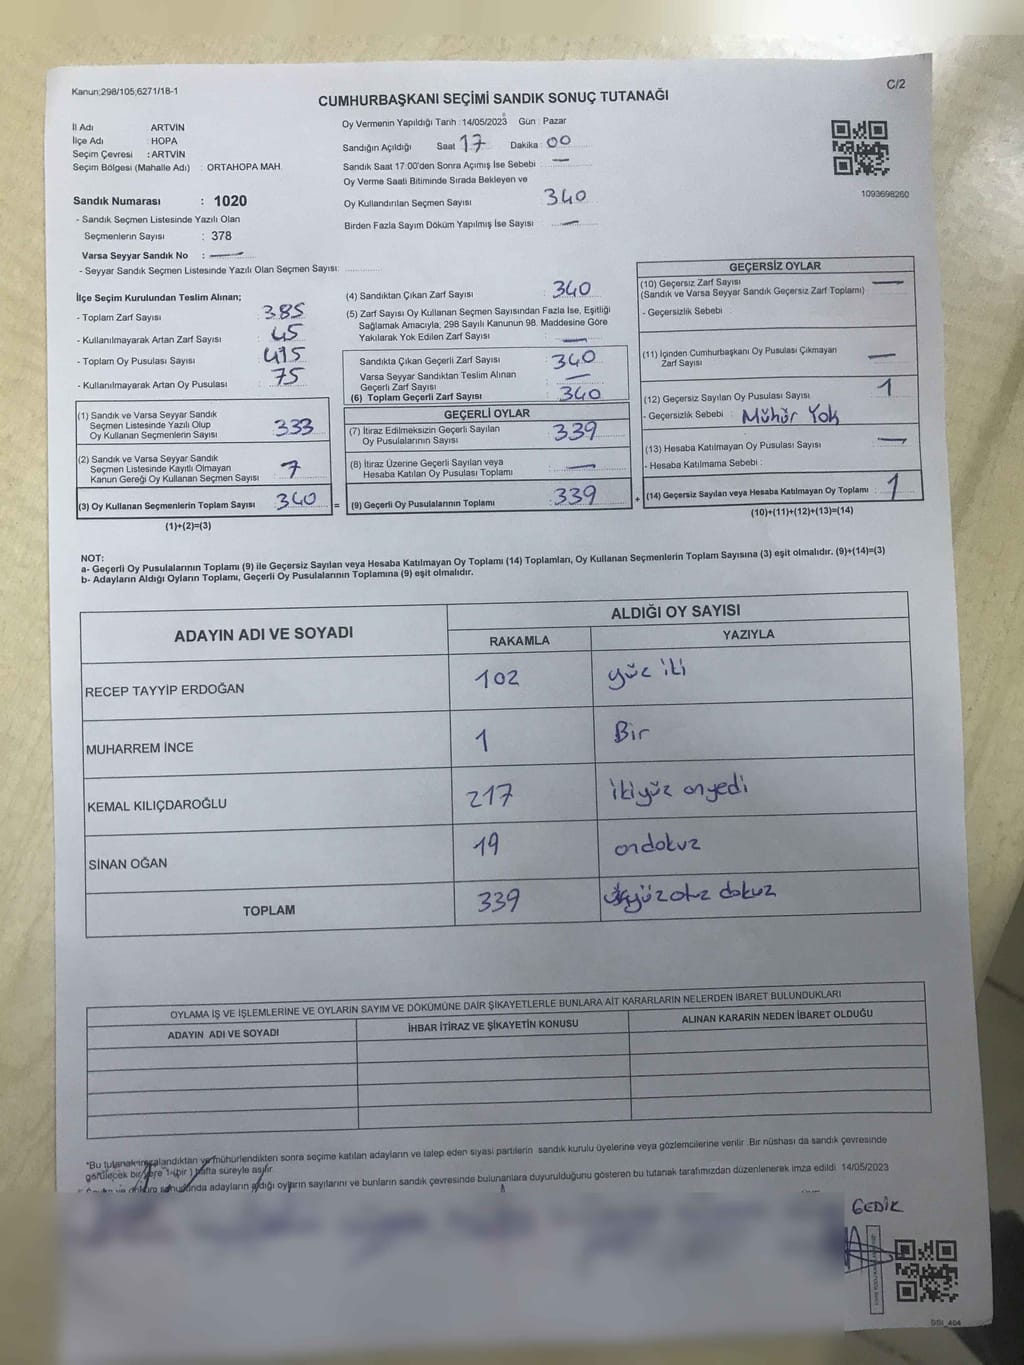 Kanun;298/105;6271/18-1
C/2
CUMHURBAŞKANI SEÇİMİ SANDIK SONUÇ TUTANAĞI
İl Adı ARTVİN
İlçe Adı : HOPA
Seçim Çevresi : ARTVİN
Seçim Bölgesi (Mahalle Adı) : ORTAHOPA MAH.
Sandık Numarası : 1020
- Sandık Seçmen Listesinde Yazılı Olan
Seçmenlerin Sayısı : 378
Varsa Seyyar Sandık No : —
- Seyyar Sandık Seçmen Listesinde Yazılı Olan Seçmen Sayısı:
Oy Vermenin Yapıldığı Tarih : 14/05/2023 Gün : Pazar
Sandığın Açıldığı Saat 17 Dakika : 00
Sandık Saat 17:00'den Sonra Açımış İse Sebebi : —
Oy Verme Saati Bitiminde Sırada Bekleyen ve
Oy Kullandırılan Seçmen Sayısı 340
Birden Fazla Sayım Döküm Yapılmış İse Sayısı : —
1093698260
İlçe Seçim Kurulundan Teslim Alınan;
- Toplam Zarf Sayısı : 385
- Kullanılmayarak Artan Zarf Sayısı : 45
- Toplam Oy Pusulası Sayısı : 415
- Kullanılmayarak Artan Oy Pusulası : 75
(1) Sandık ve Varsa Seyyar Sandık
Seçmen Listesinde Yazılı Olup
Oy Kullanan Seçmenlerin Sayısı 333
(2) Sandık ve Varsa Seyyar Sandık
Seçmen Listesinde Kayıtlı Olmayan
Kanun Gereği Oy Kullanan Seçmen Sayısı : 7
(3) Oy Kullanan Seçmenlerin Toplam Sayısı : 340 =
(1)+(2)=(3)
(4) Sandıktan Çıkan Zarf Sayısı : 340
(5) Zarf Sayısı Oy Kullanan Seçmen Sayısından Fazla İse, Eşitliği
Sağlamak Amacıyla, 298 Sayılı Kanunun 98. Maddesine Göre
Yakılarak Yok Edilen Zarf Sayısı : —
Sandıkta Çıkan Geçerli Zarf Sayısı : 340
Varsa Seyyar Sandıktan Teslim Alınan
Geçerli Zarf Sayısı : —
(6) Toplam Geçerli Zarf Sayısı : 340
GEÇERLİ OYLAR
(7) İtiraz Edilmeksizin Geçerli Sayılan
Oy Pusulalarının Sayısı : 339
(8) İtiraz Üzerine Geçerli Sayılan veya
Hesaba Katılan Oy Pusulası Toplamı : —
(9) Geçerli Oy Pusulalarının Toplamı : 339 +
GEÇERSİZ OYLAR
(10) Geçersiz Zarf Sayısı : —
(Sandık ve Varsa Seyyar Sandık Geçersiz Zarf Toplamı)
- Geçersizlik Sebebi :
(11) İçinden Cumhurbaşkanı Oy Pusulası Çıkmayan
Zarf Sayısı : —
(12) Geçersiz Sayılan Oy Pusulası Sayısı : 1
- Geçersizlik Sebebi : Mühür Yok
(13) Hesaba Katılmayan Oy Pusulası Sayısı : —
- Hesaba Katılmama Sebebi :
(14) Geçersiz Sayılan veya Hesaba Katılmayan Oy Toplamı : 1
(10)+(11)+(12)+(13)=(14)
NOT:
a- Geçerli Oy Pusulalarının Toplamı (9) ile Geçersiz Sayılan veya Hesaba Katılmayan Oy Toplamı (14) Toplamları, Oy Kullanan Seçmenlerin Toplam Sayısına (3) eşit olmalıdır. (9)+(14)=(3)
b- Adayların Aldığı Oyların Toplamı, Geçerli Oy Pusulalarının Toplamına (9) eşit olmalıdır.
ADAYIN ADI VE SOYADI ALDIĞI OY SAYISI
RAKAMLA YAZIYLA
RECEP TAYYİP ERDOĞAN 102 yüz iki
MUHARREM İNCE 1 Bir
KEMAL KILIÇDAROĞLU 217 ikiyüz onyedi
SİNAN OĞAN 19 ondokuz
TOPLAM 339 üçyüzotuz dokuz
OYLAMA İŞ VE İŞLEMLERİNE VE OYLARIN SAYIM VE DÖKÜMÜNE DAİR ŞİKAYETLERLE BUNLARA AİT KARARLARIN NELERDEN İBARET BULUNDUKLARI
ADAYIN ADI VE SOYADI İHBAR İTİRAZ VE ŞİKAYETİN KONUSU ALINAN KARARIN NEDEN İBARET OLDUĞU
*Bu tutanak imzalandıktan ve mühürlendikten sonra seçime katılan adayların ve talep eden siyasi partilerin sandık kurulu üyelerine veya gözlemcilerine verilir .Bir nüshası da sandık çevresinde
görülecek bir yere 1 (bir ) hafta süreyle asılır.
sonucunda adayların aldığı oyların sayılarını ve bunların sandık çevresinde bulunanlara duyurulduğunu gösteren bu tutanak tarafımızdan düzenlenerek imza edildi 14/05/2023
GEDİK